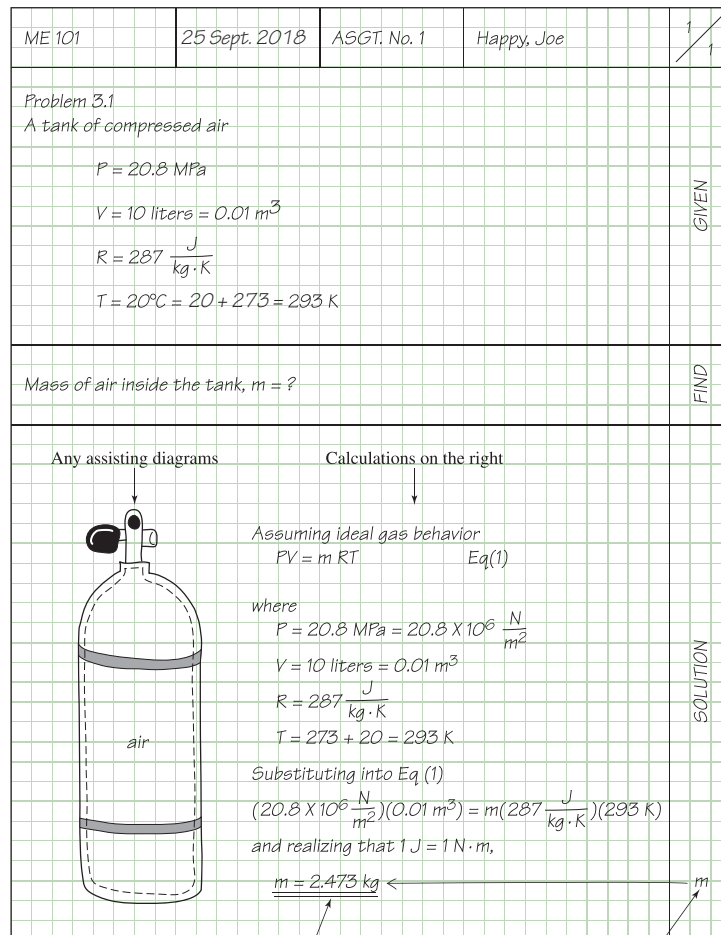 ME 101 25 Sept. 2018 ASGT. No. 1 Happy, Joe 1/1
Problem 3.1
A tank of compressed air
P = 20.8 MPa
V = 10 liters = 0.01 m³
R = 287 J/kg · K
T = 20°C = 20 + 273 = 293 K
GIVEN
Mass of air inside the tank, m = ?
FIND
Any assisting diagrams
Calculations on the right
air
Assuming ideal gas behavior
PV = m RT Eq(1)
where
P = 20.8 MPa = 20.8 X 10⁶ N/m²
V = 10 liters = 0.01 m³
R = 287 J/kg · K
T = 273 + 20 = 293 K
Substituting into Eq (1)
(20.8 X 10⁶ N/m²)(0.01 m³) = m(287 J/kg · K)(293 K)
and realizing that 1 J = 1 N · m,
m = 2.473 kg
m
SOLUTION